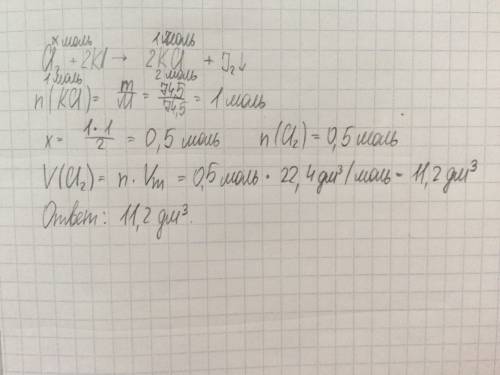 x моль 1 моль
Cl₂ + 2KI → 2KCl + J₂↓
1 моль 2 моль
n(KCl) = m/M = 74,5/74,5 = 1 моль
x = 1·1/2 = 0,5 моль n(Cl₂) = 0,5 моль
V(Cl₂) = n · Vm = 0,5 моль · 22,4 дм³/моль = 11,2 дм³
Ответ: 11,2 дм³.